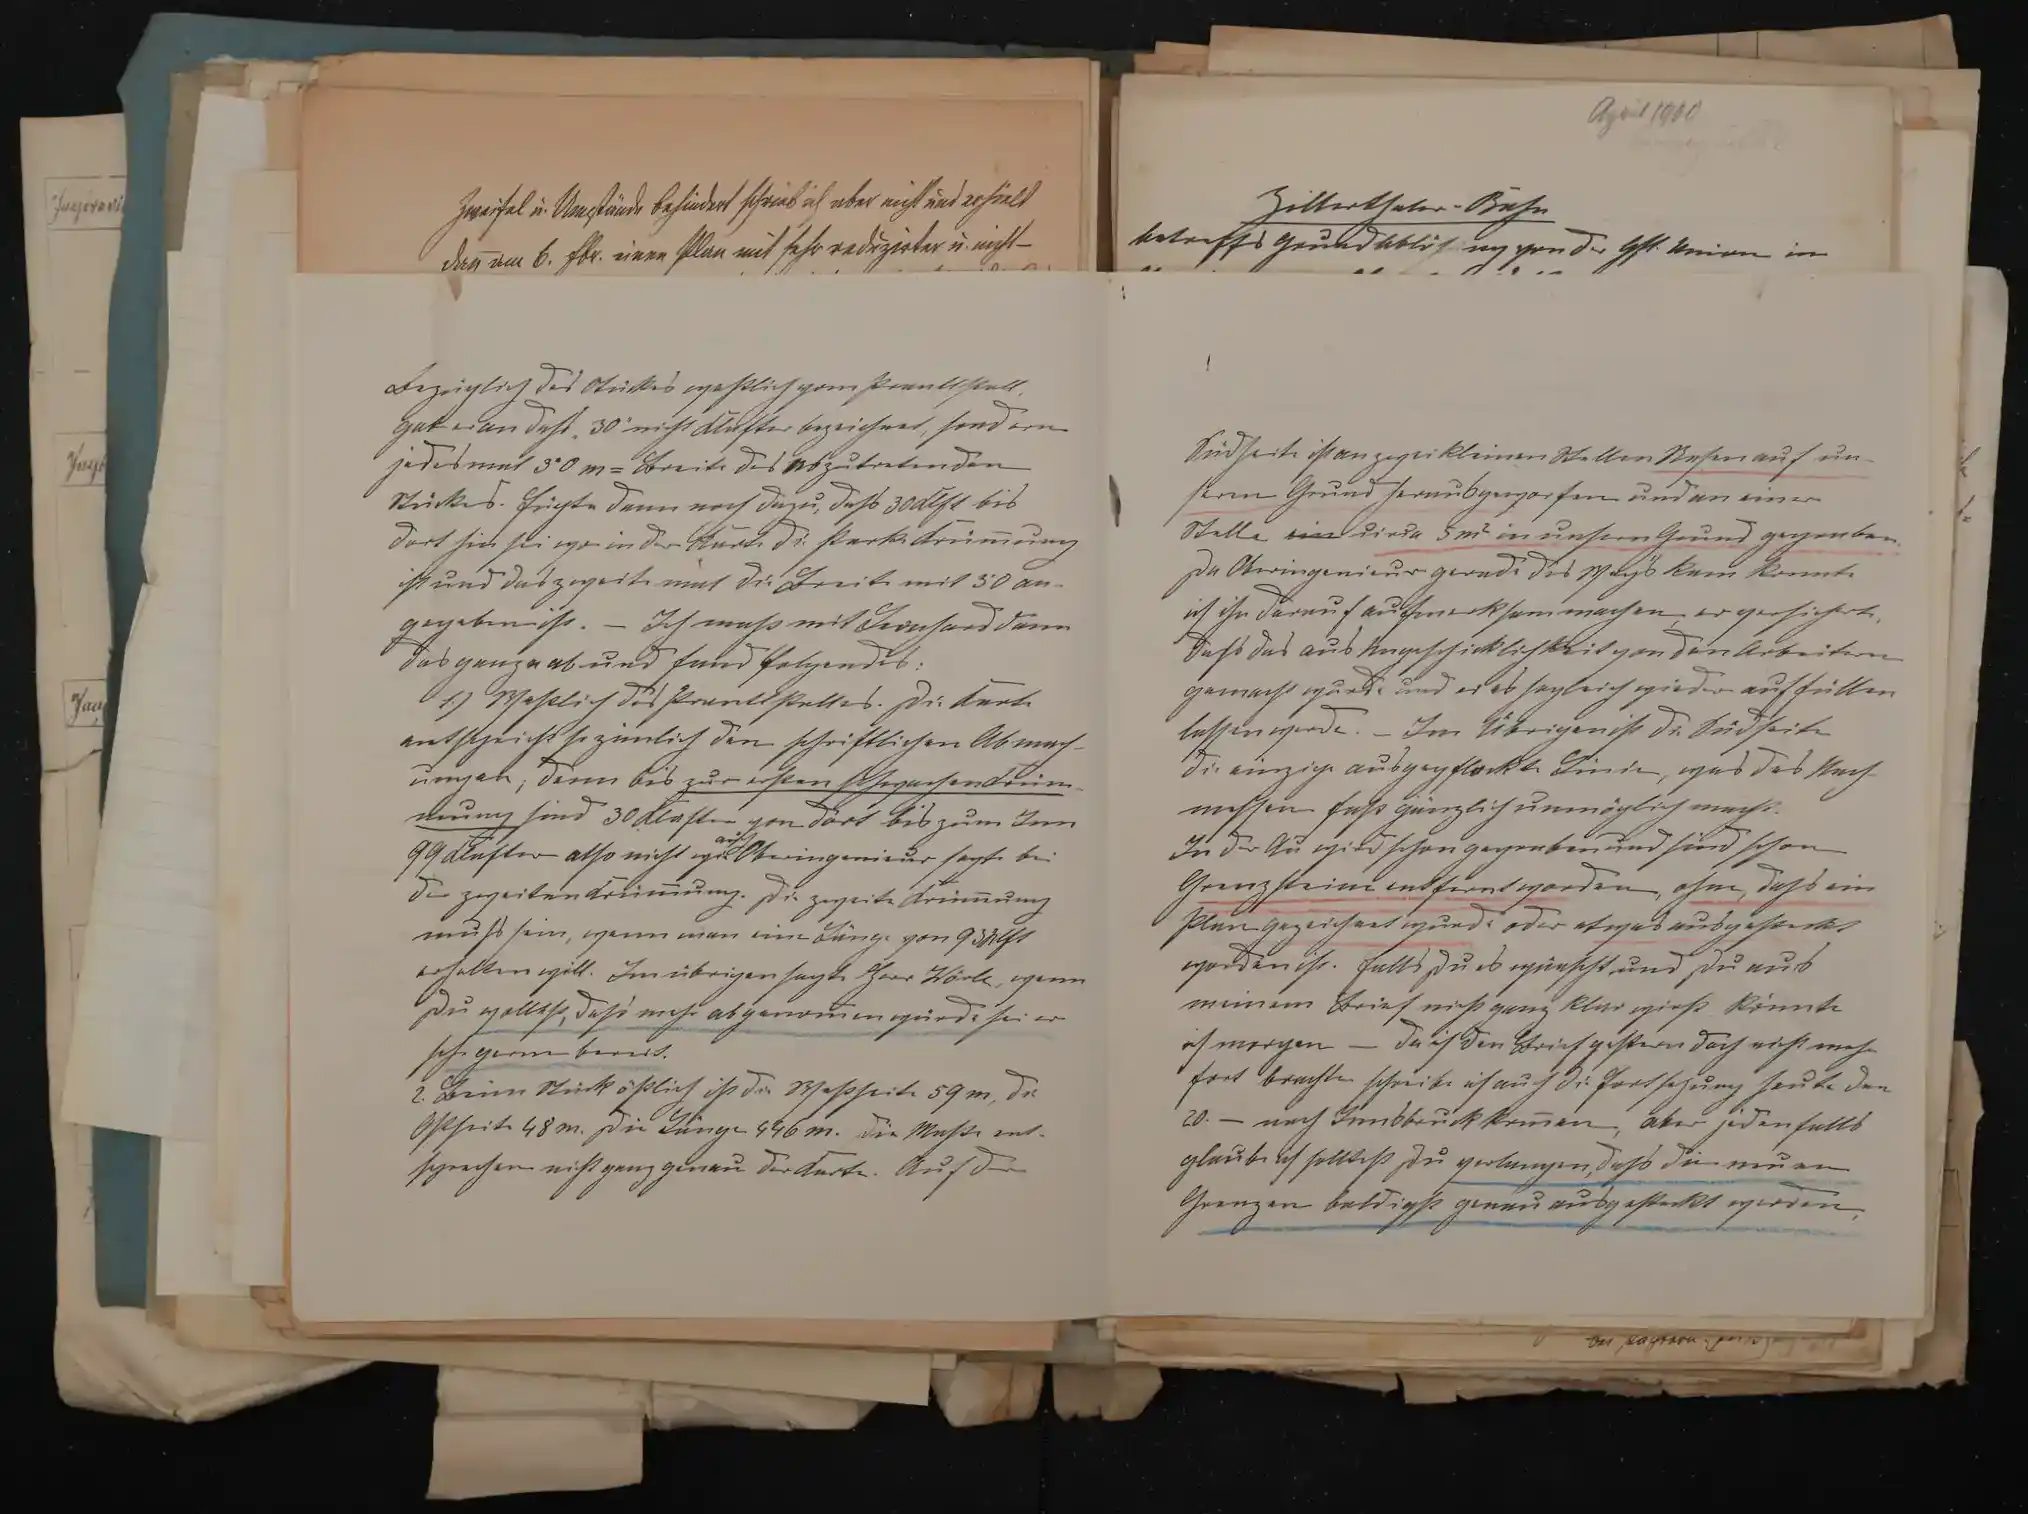 Zweifel u. Umstände behindert schrieb ich aber nicht und erhielt
dann am 6. Fbr. einen Plan mit sehr reduzirter u. nicht-
April 1900
Zillerthaler-Bahn
betreffs Grundablösung von der Gft. Union in
Bezüglich des Stückes westlich vom Krautstall,
gab er an dass „30" nicht Klafter bezeichnet, sondern
jedesmal 3°0 m = Breite des abzutretenden
Stückes. Fügte dann noch dazu, dass 30 Klft bis
dort hin sei wo in der Karte die starke Krümmung
ist und das zweite mal die Breite mit 3°0 an-
gegeben ist. – Ich mass mit Bernhard dann
das ganze ab und fand folgendes:
1.) Westlich des Krautstalles. Die Karte
entspricht so ziemlich den schriftlichen Abmach-
ungen; denn bis zur ersten schwachen Krüm-
mung sind 30 Klafter von dort bis zum Inn
99 Klafter also nicht wie auch Oberingenieur sagte bei
der zweiten Krümmung. Die zweite Krümmung
muss sein, wenn man eine Länge von 93 Klft
erhalten will. Im übrigen sagte Herr Wörle, wenn
Du wolltest, dass mehr abgenommen würde sei er
sehr gerne bereit.
2. Beim Stück östlich ist die Westseite 59 m, die
Ostseite 48 m. Die Länge 446 m. Die Masse ent-
sprechen nicht ganz genau der Karte. Auf der
Südseite ist an zwei kleinen Stellen Rasen auf un-
serm Grund herausgeworfen und an einer
Stelle circa 5 m² in unsern Grund gegraben.
Da Oberingenieur gerade des Wegs kam konnte
ich ihn darauf aufmerksam machen, er versicherte,
dass das aus Ungeschicklichkeit von den Arbeitern
gemacht wurde und er es sogleich wieder auffüllen
lassen werde. – Im Übrigen ist die Südseite
die einzige ausgepflockte Linie, was das Nach-
messen fast gänzlich unmöglich macht.
In der Au wird schon gegraben und sind schon
Grenzsteine entfernt worden, ohne, dass ein
Plan gezeichnet wurde oder etwas ausgesteckt
worden ist. Falls Du es wünscht und Du aus
meinem Brief nicht ganz klar wirst könnte
ich morgen – da ich den Brief gestern doch nicht mehr
fort brachte schreibe ich auch die Fortsetzung heute den
20. – nach Innsbruck kommen, aber jedenfalls
glaube ich solltest Du verlangen, dass die neuen
Grenzen baldigst genau ausgesteckt werden.